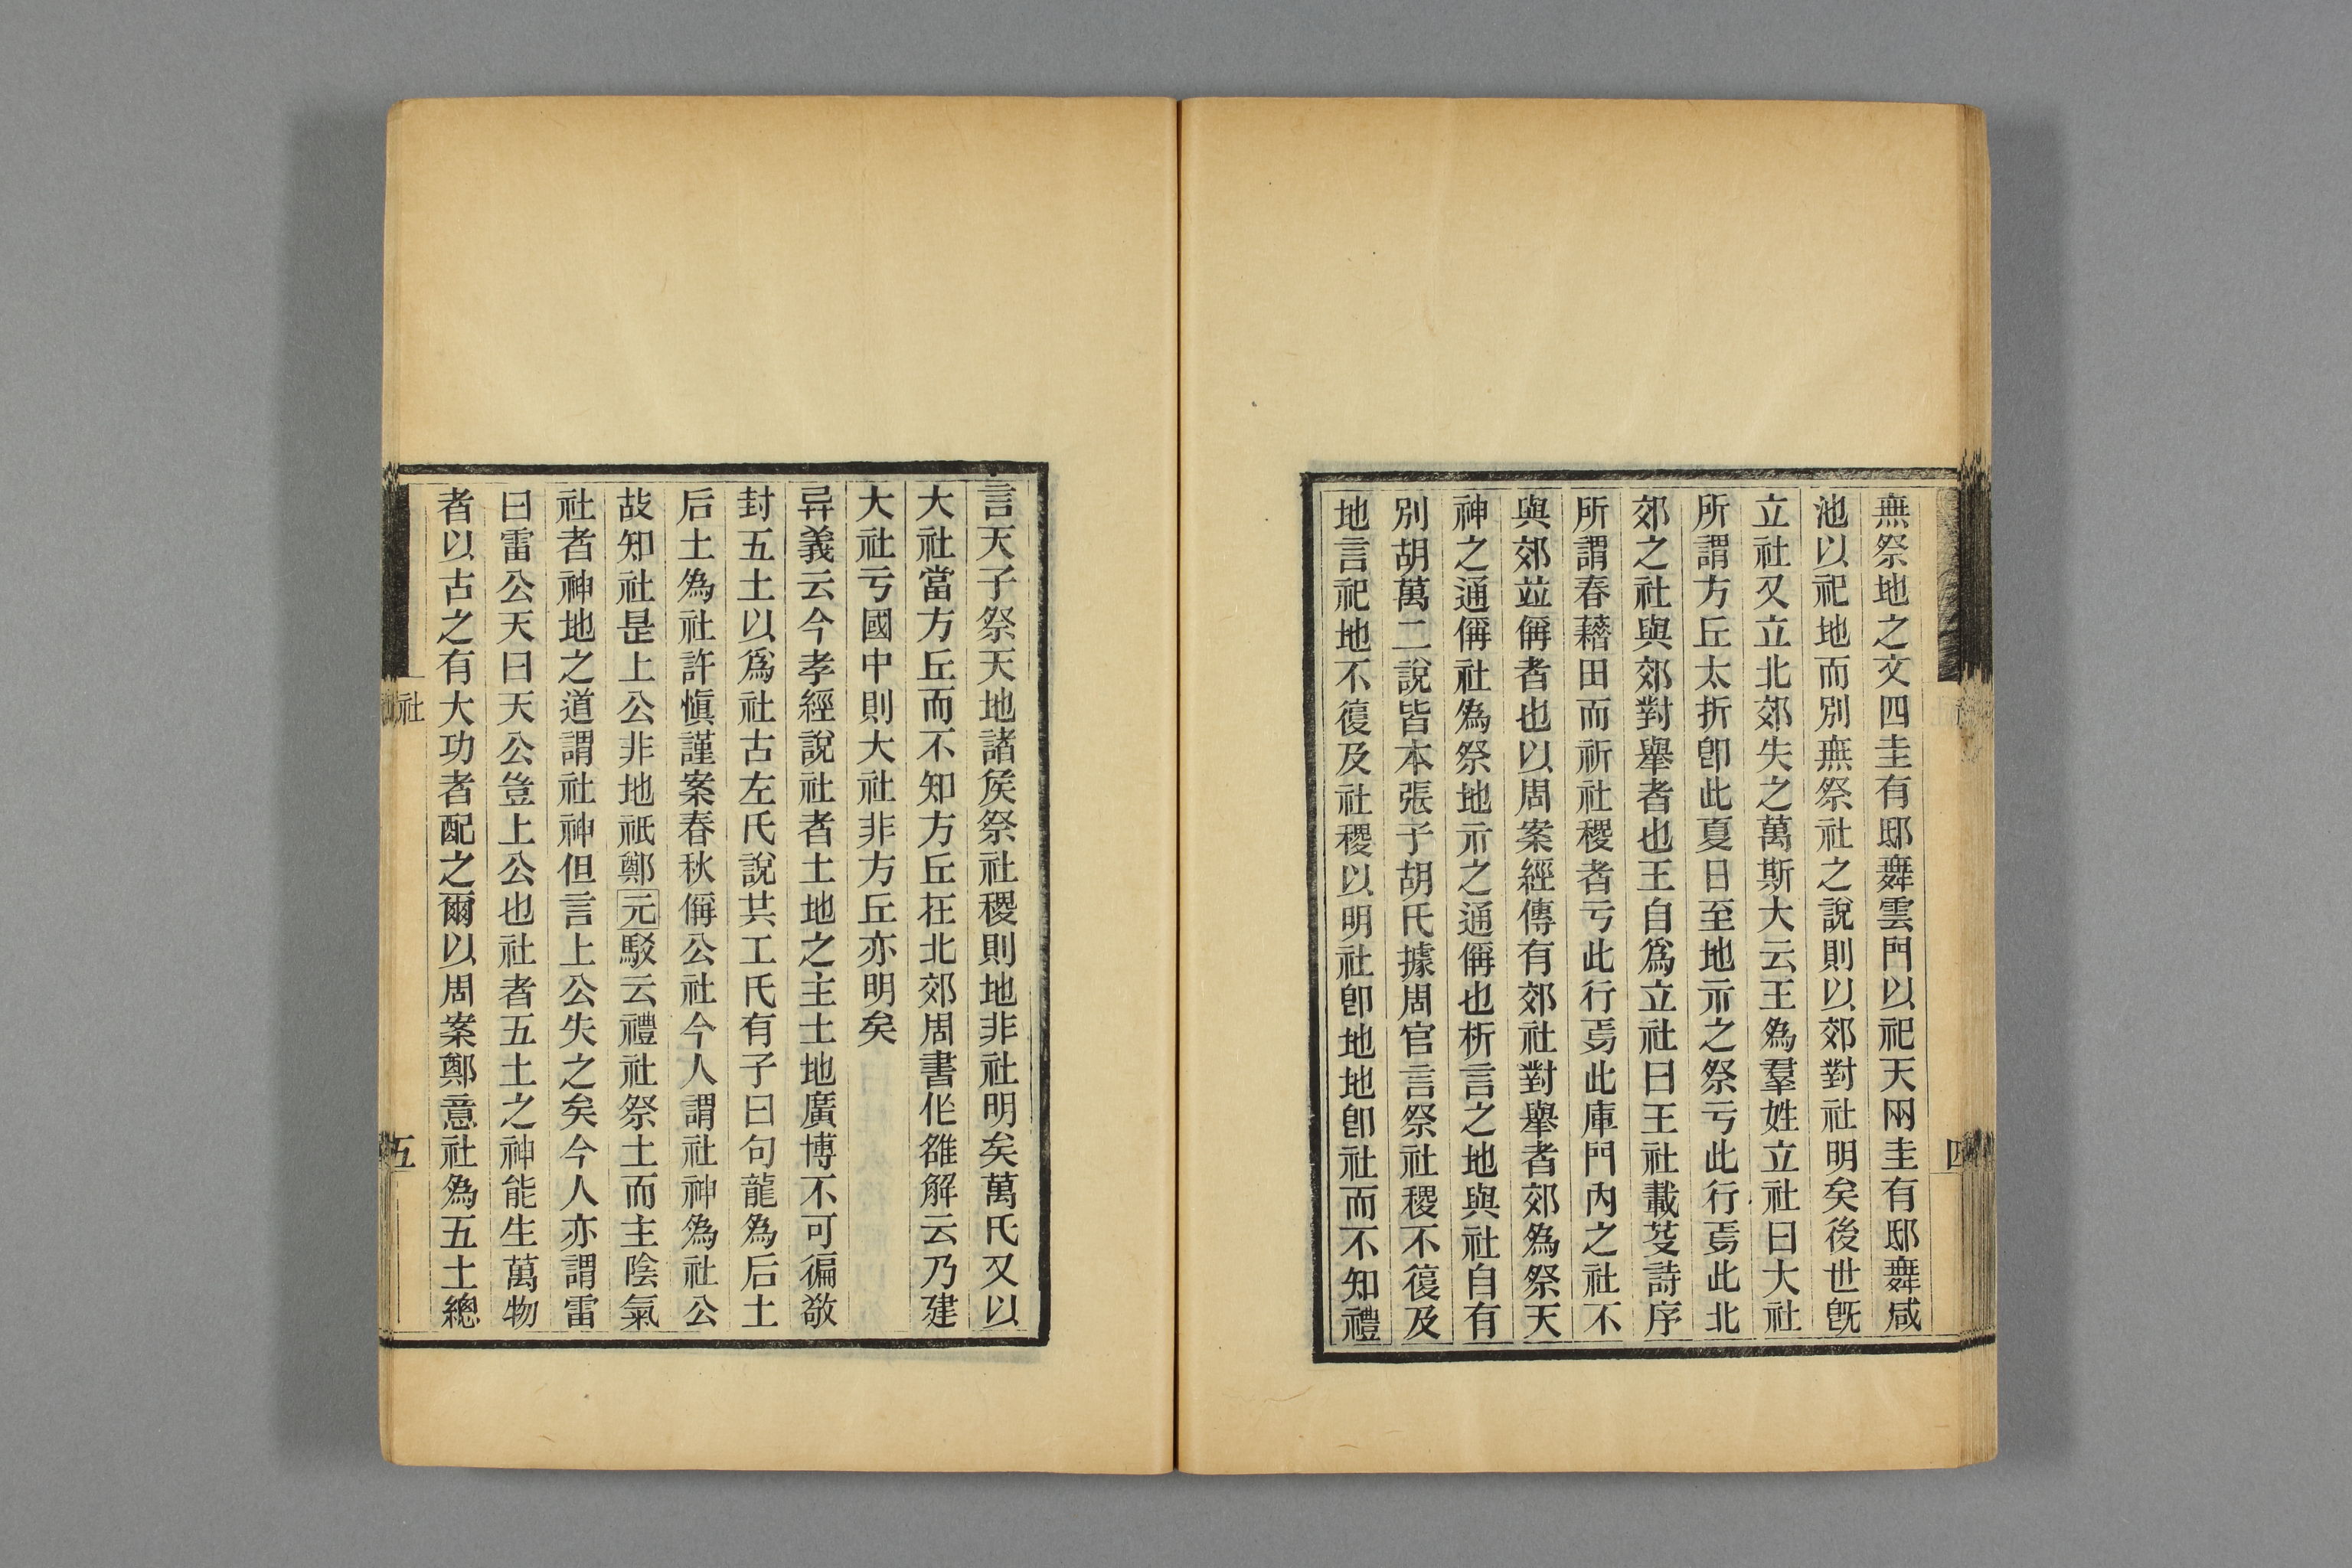 無祭地之文四圭有邸舞雲門以祀天兩圭有邸舞咸
池以祀地而別無祭社之說則以郊對社明矣後世旣
立社又立北郊失之萬斯大云王爲羣姓立社曰大社
所謂方丘太折卽此夏日至地示之祭亏此行焉此北
郊之社與郊對舉者也王自爲立社曰王社載芟詩序
所謂春藉田而祈社稷者亏此行焉此庫門內之社不
與郊竝偁者也以周案經傳有郊社對舉者郊爲祭天
神之通偁社爲祭地示之通偁也析言之地與社自有
別胡萬二說皆本張子胡氏據周官言祭社稷不復及
地言祀地不復及社稷以明社卽地地卽社而不知禮
四
言天子祭天地諸矦祭社稷則地非社明矣萬氏又以
大社當方丘而不知方丘在北郊周書作雒解云乃建
大社亏國中則大社非方丘亦明矣
异義云今孝經說社者土地之主土地廣博不可徧敬
封五土以爲社古左氏說共工氏有子曰句龍爲后土
后土爲社許愼謹案春秋偁公社今人謂社神爲社公
故知社是上公非地祇鄭元駁云禮社祭土而主陰氣
社者神地之道謂社神但言上公失之矣今人亦謂雷
曰雷公天曰天公豈上公也社者五土之神能生萬物
者以古之有大功者配之爾以周案鄭意社爲五土總
社
五